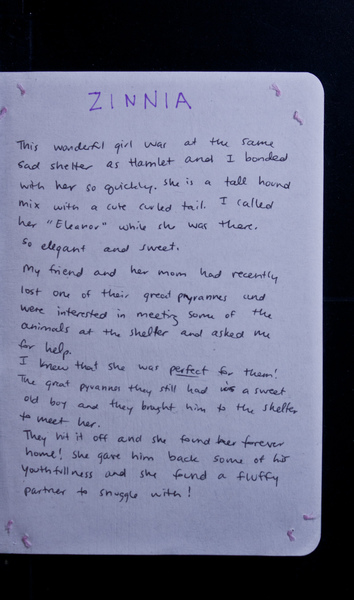 ZINNIA
This wonderful girl was at the same
sad shelter as Hamlet and I bonded
with her so quickly. She is a tall hound
mix with a cute curled tail. I called
her "Eleanor" while she was there.
So elegant and sweet.
My friend and her mom had recently
lost one of their great pyrannes and
were interested in meeting some of the
animals at the shelter and asked me
for help.
I knew that she was perfect for them!
The great pyrannes they still had is a sweet
old boy and they brought him to the shelter
to meet her.
They hit it off and she found her forever
home! She gave him back some of his
youthfullness and she found a fluffy
partner to snuggle with!